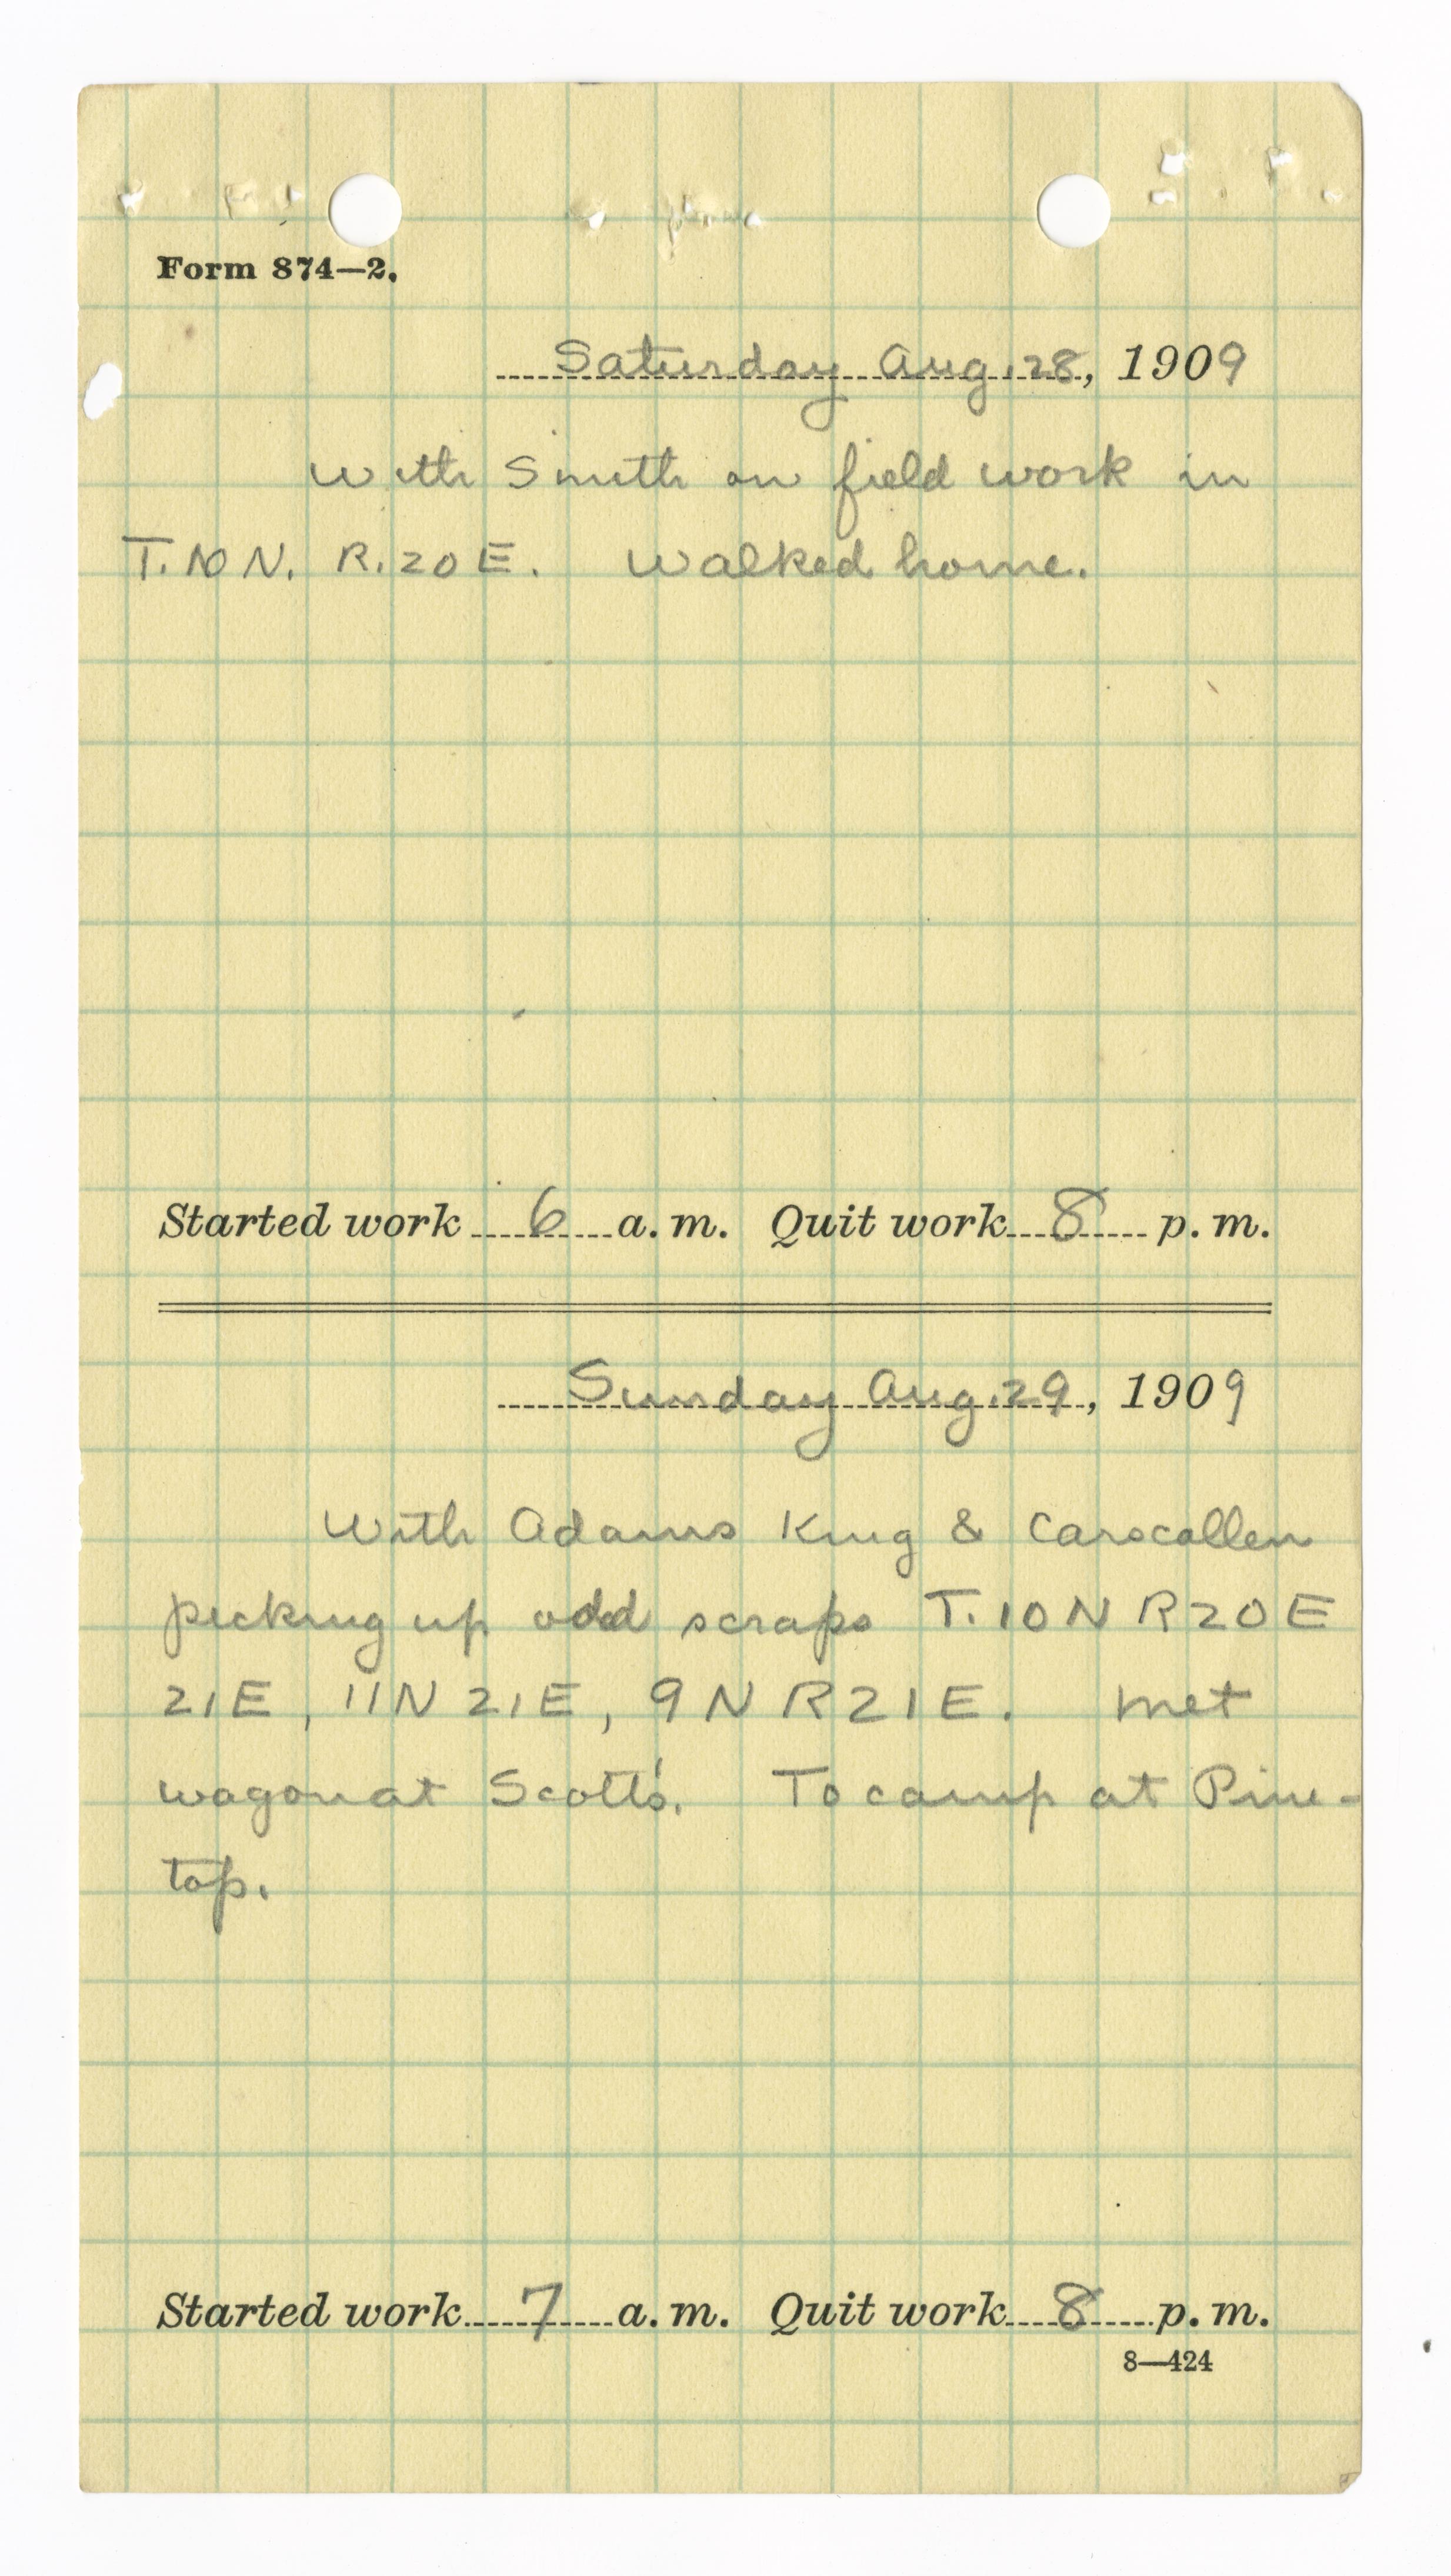 Form 874—2.
Saturday Aug. 28, 1909
With Smith on field work in
T. 10 N. R. 20 E. Walked home.
Started work 6 a. m. Quit work 8 p. m.
Sunday Aug. 29, 1909
With Adams King & Carscallen
picking up odd scraps T. 10 N R 20 E
21 E, 11 N 21 E, 9 N R 21 E. Met
wagon at Scott's. To camp at Pine-
top.
Started work 7 a. m. Quit work 8 p. m.
8—424